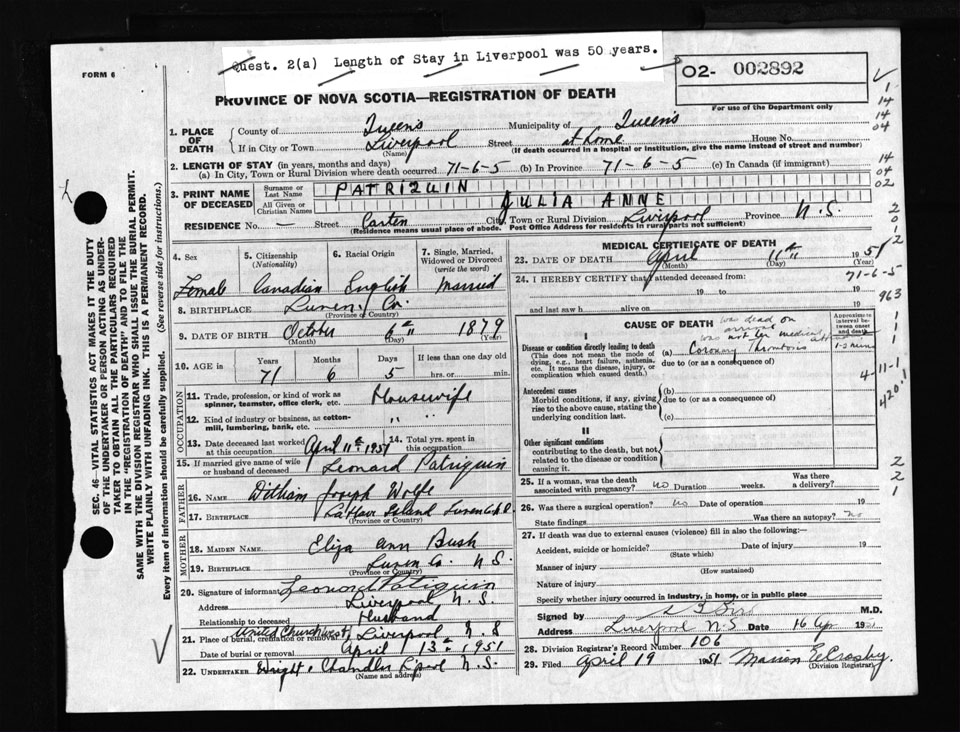 Quest. 2(a) Length of Stay in Liverpool was 50 years.
FORM 6
02- 002892
PROVINCE OF NOVA SCOTIA—REGISTRATION OF DEATH
For use of the Department only
1. PLACE OF DEATH
County of Queens Municipality of Queens
If in City or Town Liverpool Street at home House No.
(Name) (If death occurred in a hospital or institution, give the name instead of street and number)
2. LENGTH OF STAY (in years, months and days)
(a) In City, Town or Rural Division where death occurred 71-6-5 (b) In Province 71-6-5 (c) In Canada (if immigrant)
3. PRINT NAME OF DECEASED
Surname or Last Name PATRIQUIN
All Given or Christian Names JULIA ANNE
RESIDENCE No. — Street Carten City, Town or Rural Division Liverpool Province N.S.
(Residence means usual place of abode. Post Office Address for residents in rural parts not sufficient)
4. Sex
Female
5. Citizenship (Nationality)
Canadian
6. Racial Origin
English
7. Single, Married, Widowed or Divorced (write the word)
Married
8. BIRTHPLACE Lunen. Co.
(Province or Country)
9. DATE OF BIRTH October 6th 1879
(Month) (Day) (Year)
10. AGE in
Years Months Days If less than one day old
71 6 5 hrs. or min.
OCCUPATION
11. Trade, profession, or kind of work as spinner, teamster, office clerk, etc. Housewife
12. Kind of industry or business, as cotton-mill, lumbering, bank, etc. " "
13. Date deceased last worked at this occupation April 11th 1951
14. Total yrs. spent in this occupation
15. If married give name of wife or husband of deceased Leonard Patriquin
FATHER
16. NAME William Joseph Wolfe
17. BIRTHPLACE LaHave Island Lunen Co.
(Province or Country)
MOTHER
18. MAIDEN NAME Eliza Ann Bush
19. BIRTHPLACE Lunen Co. N.S.
(Province or Country)
20. Signature of informant Leonard Patriquin
Address Liverpool N.S.
Relationship to deceased Husband
21. Place of burial, cremation or removal United Church Liverpool N.S
Date of burial or removal April 13th 1951
22. UNDERTAKER Wright & Chandler N.S.
(Name and address)
MEDICAL CERTIFICATE OF DEATH
23. DATE OF DEATH April 11th 1951
(Month) (Day) (Year)
24. I HEREBY CERTIFY that I attended deceased from:
19 to 19
and last saw h alive on 19
CAUSE OF DEATH was dead on arrival
was not in medical
Approximate interval between onset and death
I
Disease or condition directly leading to death
(This does not mean the mode of dying, e.g., heart failure, asthenia, etc. It means the disease, injury, or complication which caused death.)
(a) Coronary Thrombosis 1-2 mins
due to (or as a consequence of)
Antecedent causes
Morbid conditions, if any, giving rise to the above cause, stating the underlying condition last.
(b)
due to (or as a consequence of)
(c)
II
Other significant conditions
contributing to the death, but not related to the disease or condition causing it.
25. If a woman, was the death associated with pregnancy? no Duration weeks. Was there a delivery?
26. Was there a surgical operation? no Date of operation 19
State findings Was there an autopsy? no
27. If death was due to external causes (violence) fill in also the following:—
Accident, suicide or homicide? Date of injury 19
(State which)
Manner of injury
(How sustained)
Nature of injury
Specify whether injury occurred in industry, in home, or in public place
Signed by M.D.
Address Liverpool N.S Date 16 Apr 1951
28. Division Registrar's Record Number 106
29. Filed April 19 1951 Marion E. Crosby
(Division Registrar)
SEC. 46—VITAL STATISTICS ACT MAKES IT THE DUTY
OF THE UNDERTAKER OR PERSON ACTING AS UNDER-
TAKER TO OBTAIN ALL THE PARTICULARS REQUIRED
IN THE "REGISTRATION OF DEATH" AND TO FILE THE
SAME WITH THE DIVISION REGISTRAR WHO SHALL ISSUE THE BURIAL PERMIT.
WRITE PLAINLY WITH UNFADING INK. THIS IS A PERMANENT RECORD.
Every item of information should be carefully supplied. (See reverse side for instructions.)
1
14
14
04
14
04
02
2
0
1
2
71-6-5
963
1
1
4-11-1
420.1
2
2
1